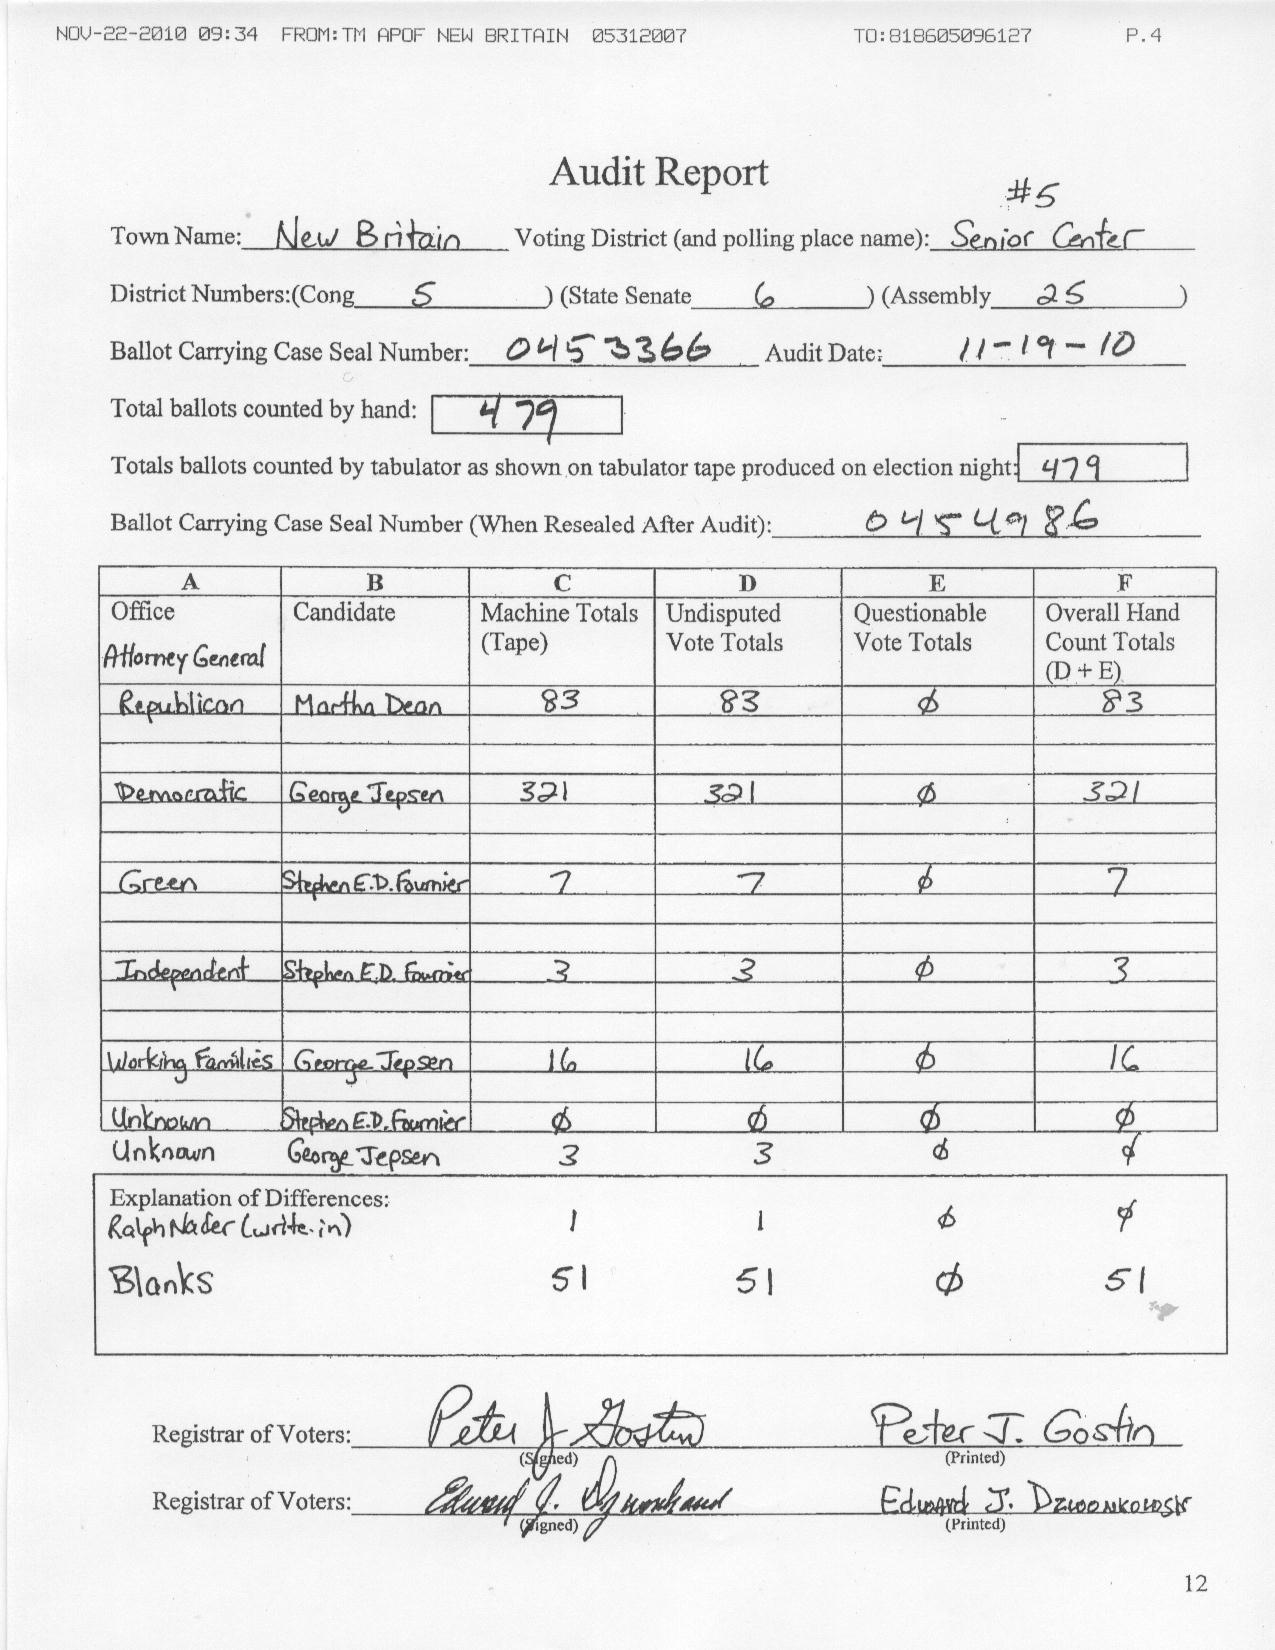 NOV-22-2010 09:34 FROM:TM APOF NEW BRITAIN 05312007 TO:818605096127 P.4
Audit Report
#5
Town Name: New Britain Voting District (and polling place name): Senior Center
District Numbers:(Cong 5 ) (State Senate 6 ) (Assembly 25 )
Ballot Carrying Case Seal Number: 0453366 Audit Date: 11-19-10
Total ballots counted by hand: 479
Totals ballots counted by tabulator as shown on tabulator tape produced on election night: 479
Ballot Carrying Case Seal Number (When Resealed After Audit): 0454986
A B C D E F
Office Candidate Machine Totals Undisputed Questionable Overall Hand
(Tape) Vote Totals Vote Totals Count Totals
Attorney General (D + E)
Republican Martha Dean 83 83 Ø 83
Democratic George Jepsen 321 321 Ø 321
Green Stephen E.D. Fournier 7 7 Ø 7
Independent Stephen E.D. Fournier 3 3 Ø 3
Working Families George Jepsen 16 16 Ø 16
Unknown Stephen E.D. Fournier Ø Ø Ø Ø
Unknown George Jepsen 3 3 Ø Ø
Explanation of Differences:
Ralph Nader (write-in) 1 1 Ø Ø
Blanks 51 51 Ø 51
Registrar of Voters: Peter J Gostin Peter J. Gostin
(Signed) (Printed)
Registrar of Voters: Edward J. Dzwonkowski Edward J. Dzwonkowski
(Signed) (Printed)
12